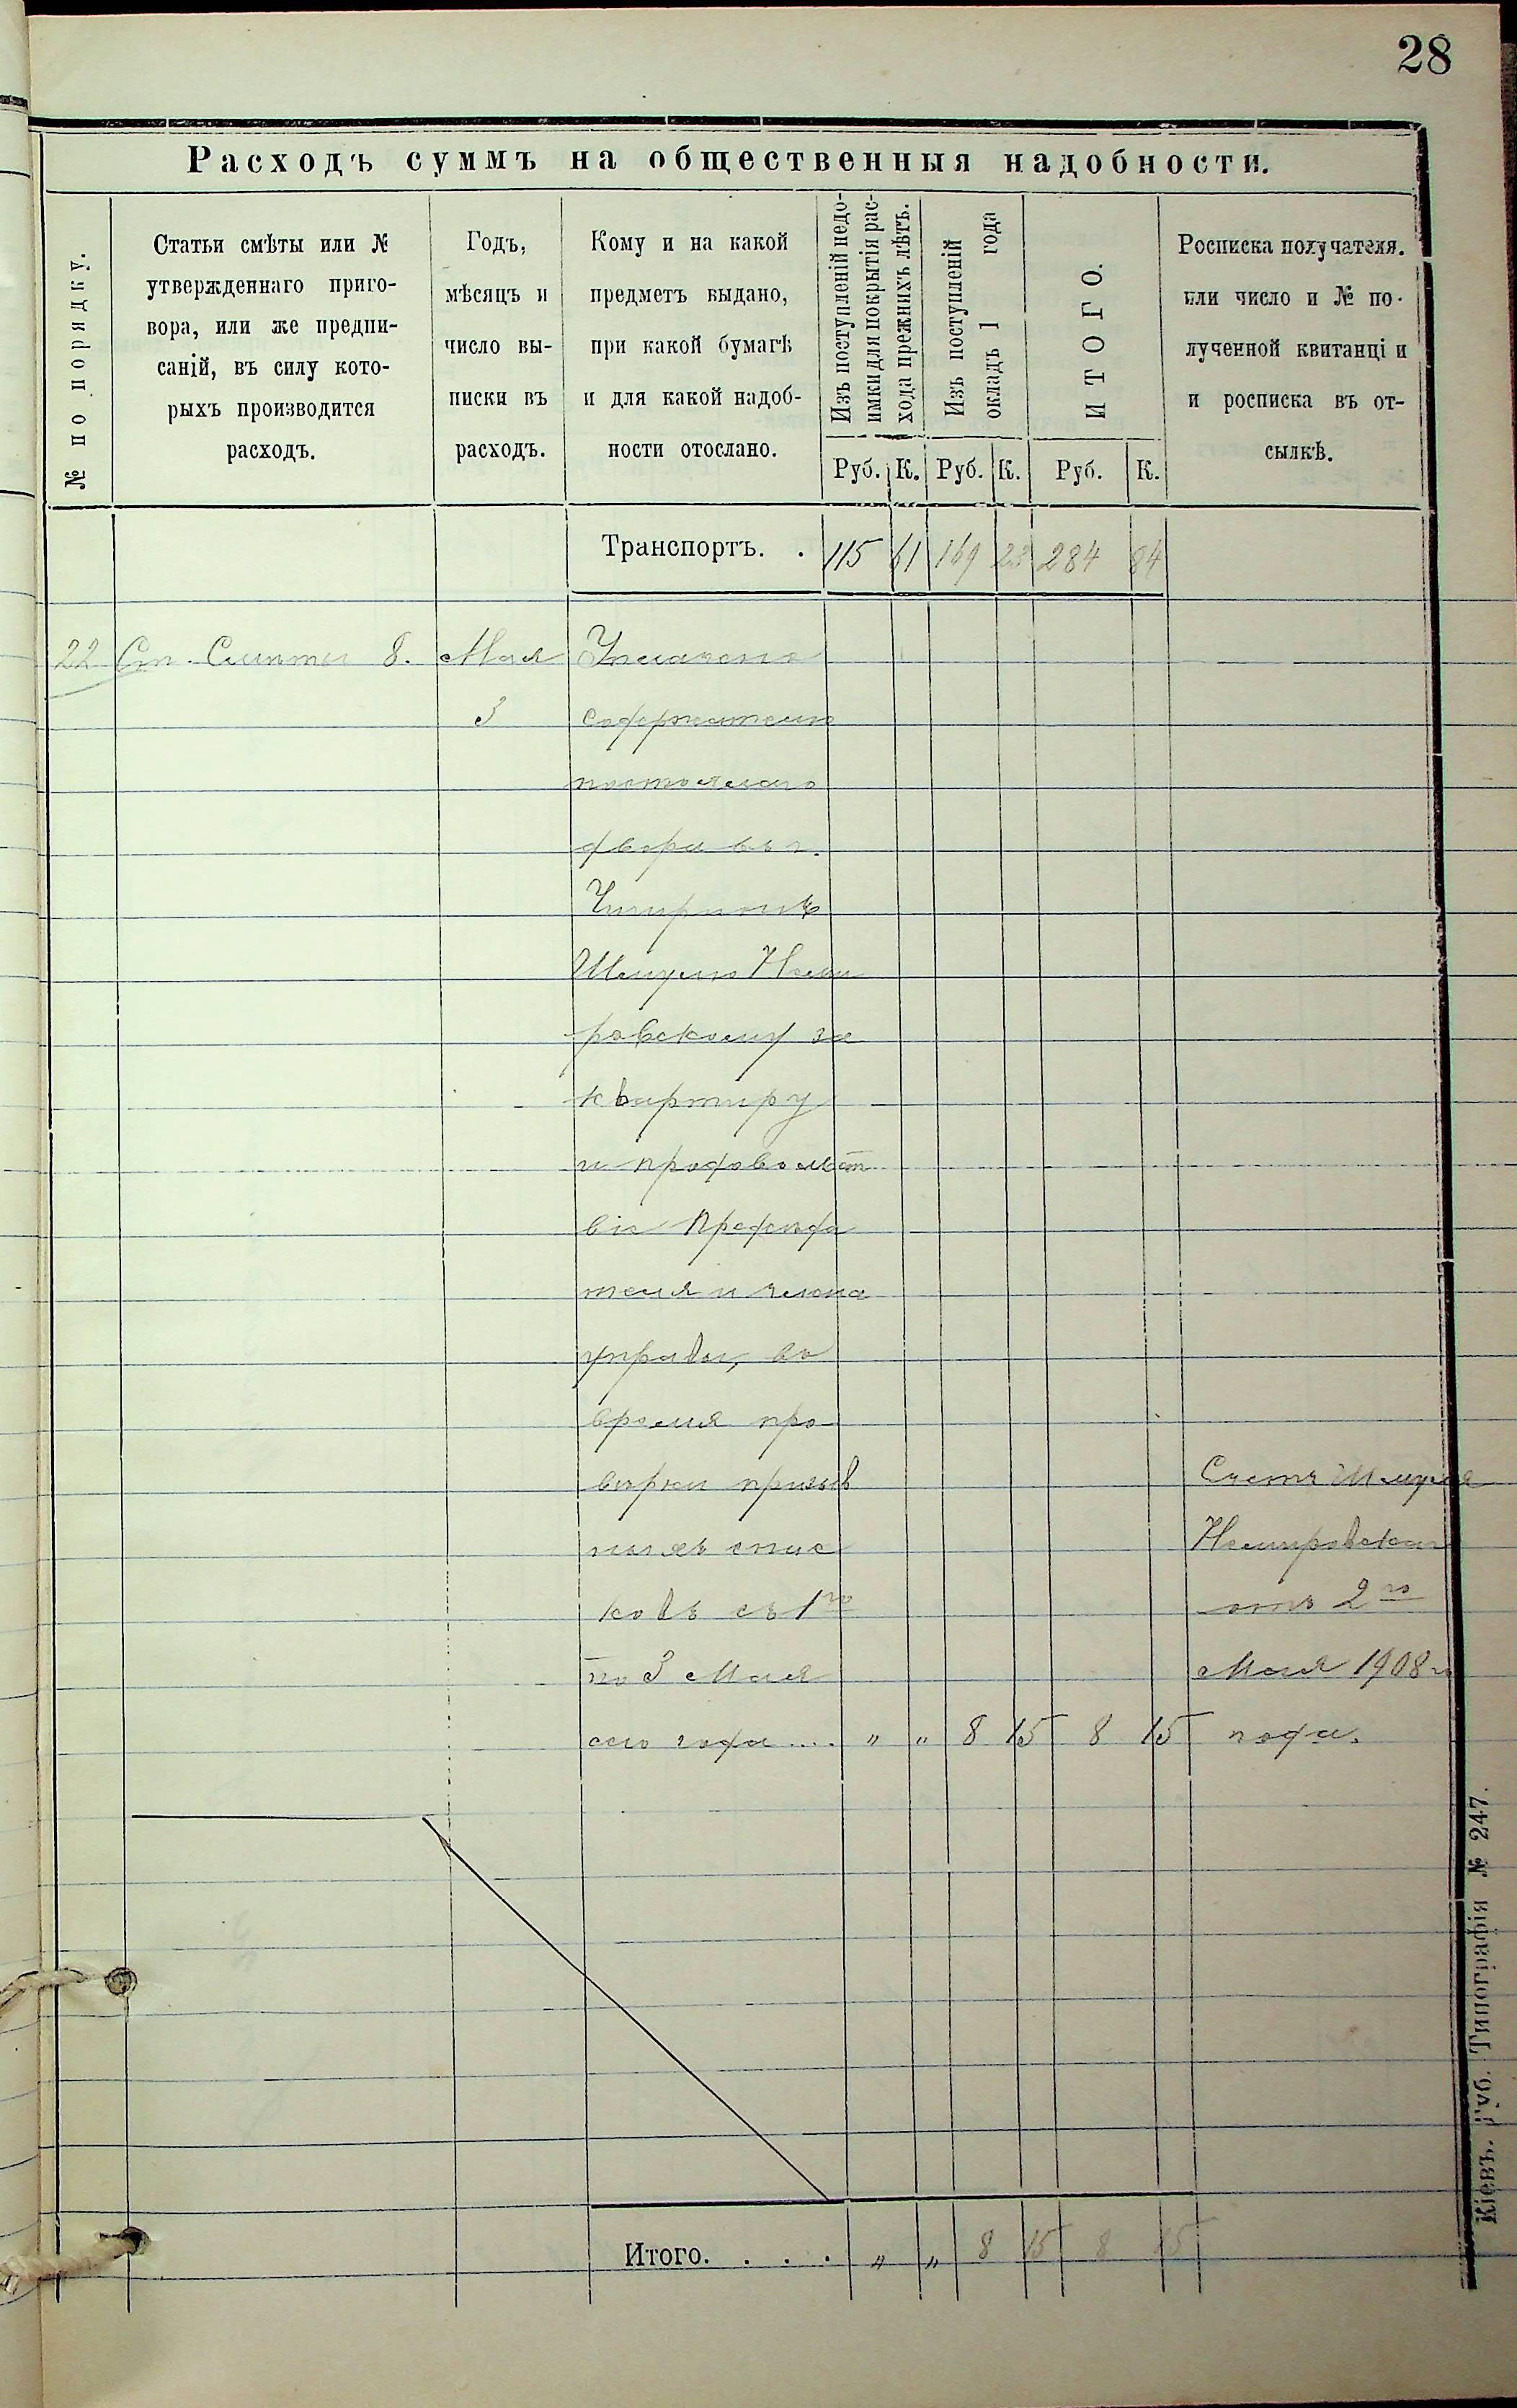 28
Расходъ суммъ на общественныя надобности.
№ по порядку.
Статьи смѣты или №
утвержденнаго приго-
вора, или же предпи-
саній, въ силу кото-
рыхъ производится
расходъ.
Годъ,
мѣсяцъ и
число вы-
писки въ
расходъ.
Кому и на какой
предметъ выдано,
при какой бумагѣ
и для какой надоб-
ности отослано.
Изъ поступленій недо-
имки для покрытія рас-
хода прежнихъ лѣтъ.
Изъ поступленій
окладъ 1 года
ИТОГО.
Росписка получателя.
или число и № по-
лученной квитанціи
и росписка въ от-
сылкѣ.
Руб. К. Руб. К. Руб. К.
Транспортъ. . 115 61 169 23 284 84
22 Ст. Смѣты 8. Мая Уплачено
3 содержателю
постоялаго
двора въ г.
Чигиринѣ
Шмулю Неми
ровскому за
квартиру
и продовольст
віе Предсѣда
теля и члена
управы, во
время про
вѣрки призыв
ныхъ спис
ковъ съ 1го
по 3 Мая
сего года .... " " 8 15 8 15
Счетъ Шмуля
Немировскаго
отъ 2го
Мая 1908 г
года.
Итого. . . . " " 8 15 8 15
Кіевъ. Губ. Типографія № 247.